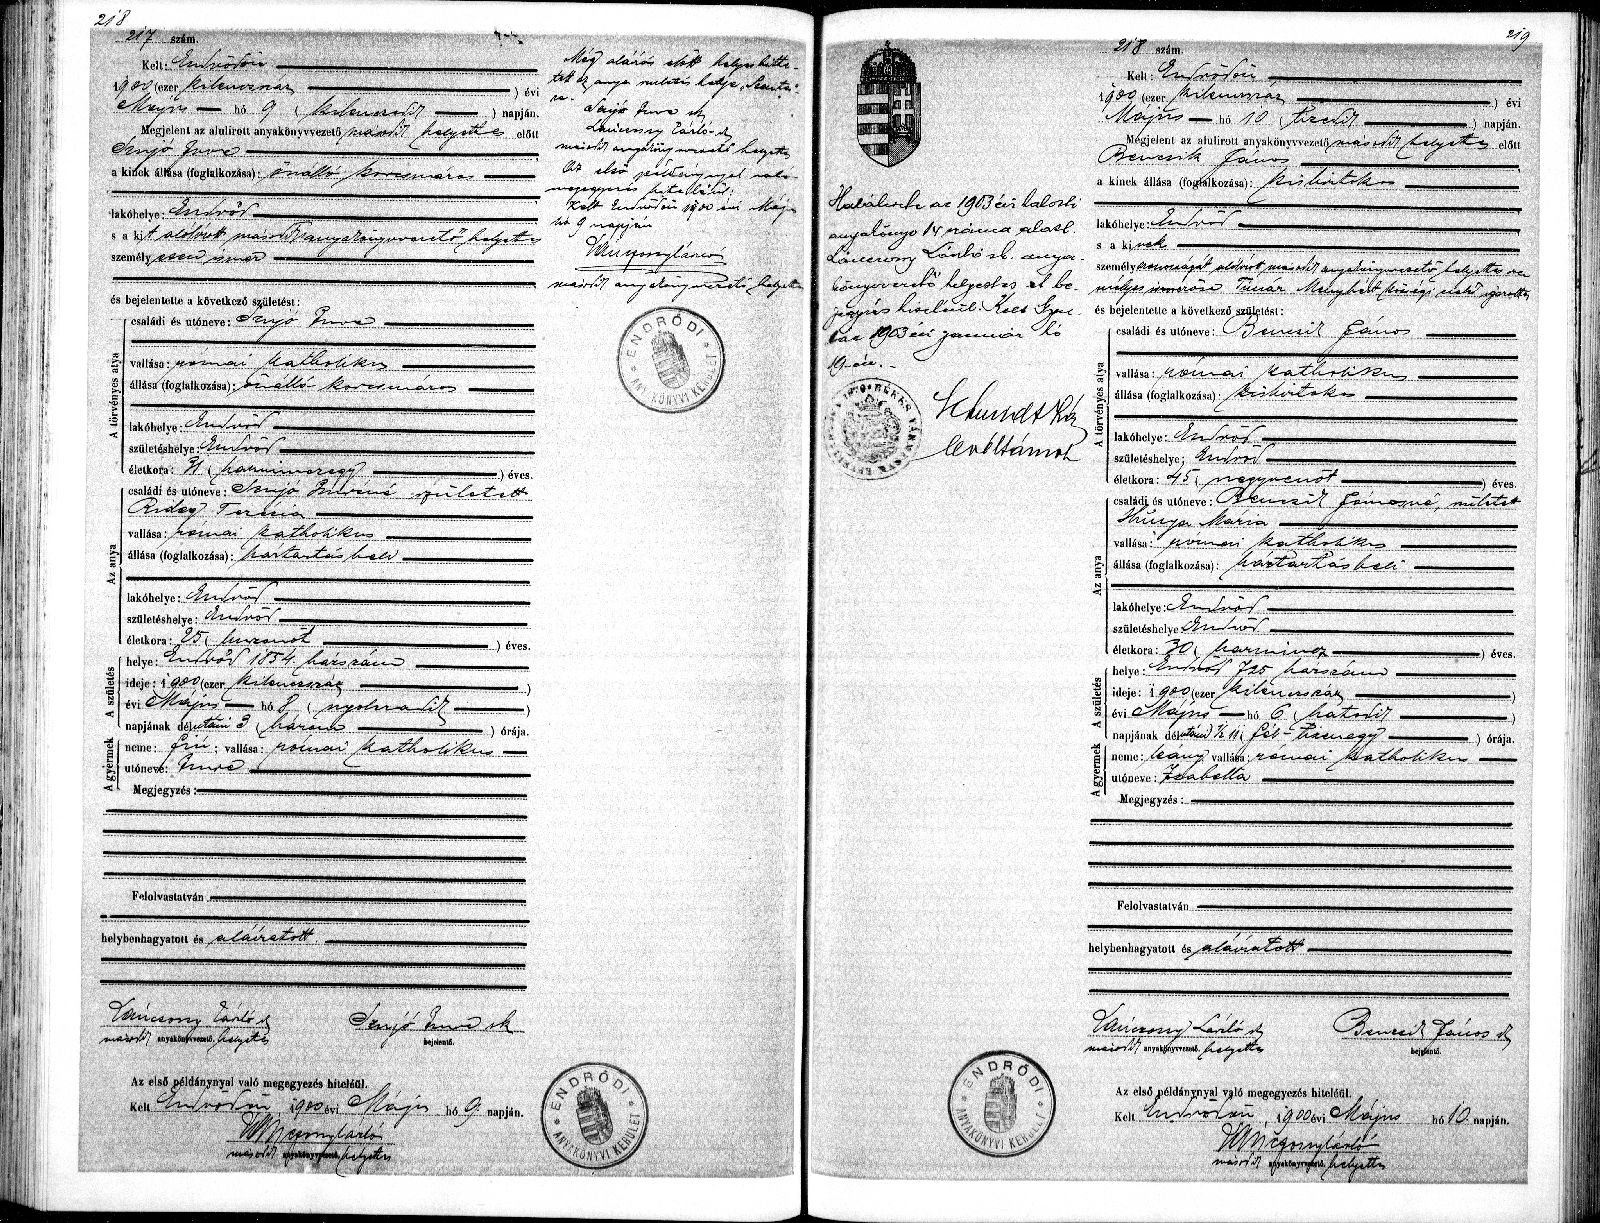 218
217 szám.
Kelt: Endrődön
1900 (ezer kilencszáz ) évi
Május hó 9 ( kilenczedik ) napján.
Megjelent az alulirott anyakönyvvezető másodh helyettes előtt
Imre
a kinek állása (foglalkozása): önálló korcsmáros
lakóhelye: Endrőd
s a kit alólirott másodh anyakönyvvezető helyettes
személyesen ismer
és bejelentette a következő születést:
A törvényes atya
családi és utóneve: Imre
vallása: római katholikus
állása (foglalkozása): önálló korcsmáros
lakóhelye: Endrőd
születéshelye: Endrőd
életkora: 31 ( harminczegy ) éves.
Az anya
családi és utóneve: Imréné, született
Rideg Terézia
vallása: római katholikus
állása (foglalkozása): háztartásbeli
lakóhelye: Endrőd
születéshelye: Endrőd
életkora: 25 ( huszonöt ) éves.
A születés
helye: Endrőd 1854 házszám
ideje: 1900 (ezer kilenczszáz )
évi Május hó 8 ( nyolczadik )
napjának délutáni 3 ( három ) órája.
A gyermek
neme: fiú; vallása: római katholikus
utóneve: Imre
Megjegyzés:
Felolvastatván
helybenhagyatott és aláiratott
Lánczsony László sk
másodh anyakönyvvezető. helyettes
Imre sk
bejelentő.
Az első példánynyal való megegyezés hiteléül.
Kelt Endrődön, 1900 évi Május hó 9 napján.
másodh anyakönyvvezető. helyettes
ENDRŐDI
ANYAKÖNYVI KERÜLET
Még aláírás előtt helyesbítte-
tett az anya születés helye
Imre sk
Lánczsony László sk
másodh anyakönyvvezető helyettes
Az első példánynyal való
megegyezés hiteléül:
Kelt Endrődön 1900 évi Május
hó 9 napján
másodh anyakönyvvezető helyettes
ENDRŐDI
ANYAKÖNYVI KERÜLET
219
Halálozás az 1903 évi halotti
anyakönyv 14 száma alatt.
Lánczsony László sk. anya-
könyvvezető helyettes. E be-
jegyzés hiteléül. Kelt Gyu-
lán 1903 évi január hó
19-én.
levéltárnok
218 szám.
Kelt: Endrődön
1900 (ezer kilenczszáz ) évi
Május hó 10 ( tizedik ) napján.
Megjelent az alulirott anyakönyvvezető másodh helyettes előtt
Bencsik János
a kinek állása (foglalkozása): kisbirtokos
lakóhelye: Endrőd
s a kinek
személyazonosságát alólirott másodh anyakönyvvezető helyettes
személyes ismerőse Tímár községi
és bejelentette a következő születést:
A törvényes atya
családi és utóneve: Bencsik János
vallása: római katholikus
állása (foglalkozása): kisbirtokos
lakóhelye: Endrőd
születéshelye: Endrőd
életkora: 45 ( negyvenöt ) éves.
Az anya
családi és utóneve: Bencsik Jánosné, született
Hunya Mária
vallása: római katholikus
állása (foglalkozása): háztartásbeli
lakóhelye: Endrőd
születéshelye: Endrőd
életkora: 30 ( harmincz ) éves.
A születés
helye: Endrőd 725 házszám
ideje: 1900 (ezer kilenczszáz )
évi Május hó 6 ( hatodik )
napjának délutáni ½ 11 ( fél-tizenegy ) órája.
A gyermek
neme: leány; vallása: római katholikus
utóneve: Izabella
Megjegyzés:
Felolvastatván
helybenhagyatott és aláiratott
Lánczsony László sk
másodh anyakönyvvezető. helyettes
Bencsik János sk
bejelentő.
Az első példánynyal való megegyezés hiteléül.
Kelt Endrődön, 1900 évi Május hó 10 napján.
másodh anyakönyvvezető. helyettes
ENDRŐDI
ANYAKÖNYVI KERÜLET